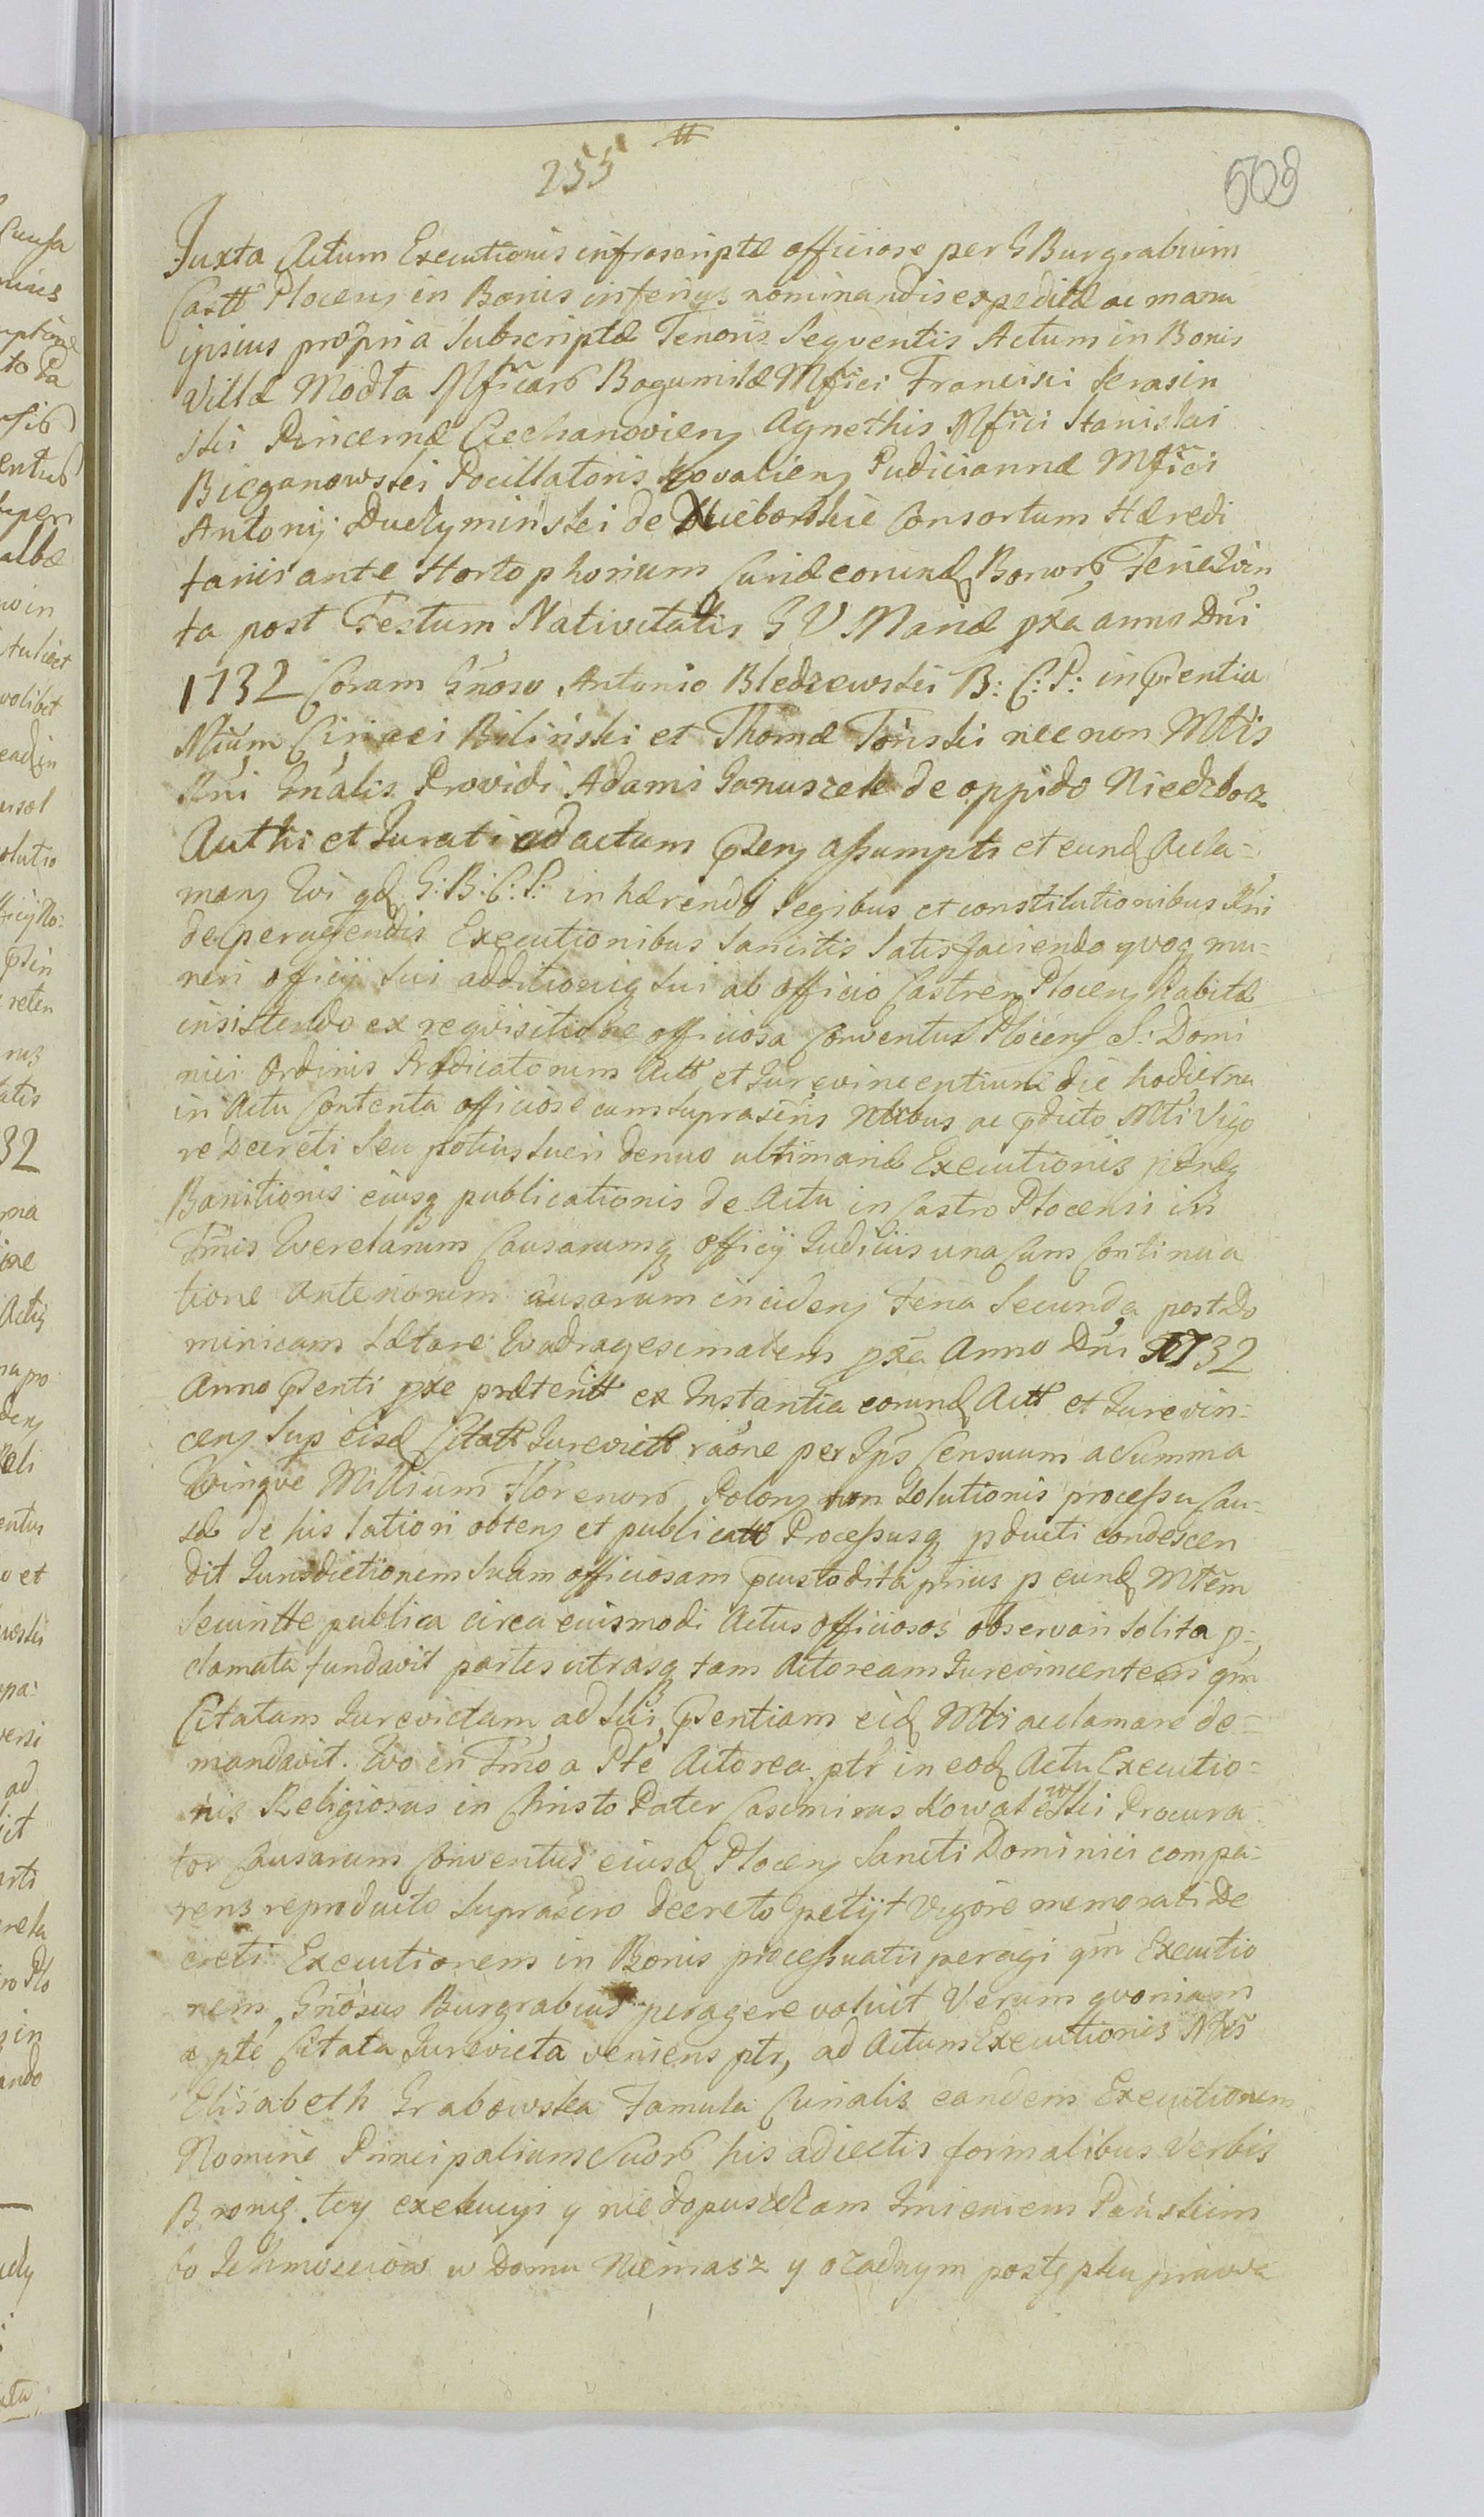 255 #
503
Juxta Actum Executionis infrascriptæ officiose per G Burgrabium
Castt Plocens in Bonis inferiys nominandis expeditæ ac manu
ipsius propria Subscriptæ Tenoris Seqventis Actum in Bonis
Villæ Modła Mficarb Bogumilæ Mfici Francisci Serasin
ski Pincernæ Ciechanoviens Agnethis Mfici Stanislai
Bieganowski Pocillatoris Kovaliens Pudiciannæ Mfici
Antonij Duczyminski de Consortum Hæredi
tariis ante Hortophorium Curiæ eorund Bonorb Feria Qvin
ta post Festum Nativitatis G V Mariæ pxa anno Dni
1732 Coram Gnoso Antonio Bledzewski B: C: P: in pñtia
Nlium Ciriaci Biliński et Thomæ Toński nec non Mtis
Rni Gnalis Providi Adami Januszek de oppido Niedzborz
Authi et Jurati ad actum pñens assumpti et eund Accla=
mans Qvi qd G: B: C: P: inhærendo Legibus et constitutionibus Rni
de peragendis Executionibus Sancitis Satisfaciendo qvoq mu=
neri officij Sui additioniq Sui ab officio Castren Plocens habitæ
insistendo ex reqvisitione officiosa Conventus Plocens S: Domi
nici Ordinis Prædicatorum Actt et Jurevincentium die hodierna
in Actu Contenta officiose cum suprascris Nlibus ac pdicto Mti Vigo
re Decreti Seu potius Lucri denuo ultimariæ Executionis
Banitionis eiusq publicationis de Actu in Castro Plocensi in
Tmis Qverelarum Causarumq officij Judicijs una Cum Continua
tione Anteriorum ausarum inciden Feria Secunda post Do
minicam Lætare Qvadragesimalem pxa Anno Dni 1732
Anno pñenti pxe præteritt ex Instantia eorund Actt et Jurevin=
cens Sup eisd Citatt Jurevictt raone per Ips Censuum a Summa
Qvinqve Millium Florenorb Polons non Solutionis processu Cau=
sæ de his latiori obtens et publicatt Processusq pducti condescen
dit Jurisdictionem Suam officiosam pcustodita prius p eund Mtem
Securitte publica circa euismodi Actus officiosos observari Solita p=
clamata fundavit partes utrasq tam Actoream Jurevincentem qm
Citatam Jurevictam ad Sui pñentiam eid Mti acclamare de=
mandavit. Qvo in Tmo a Pte Actorea ptr in eod Actu Executio=
nis Religiosus in Christo Pater Casimirus Kowalewski Procura=
tor Causarum Conventus eiusd Plocens Sancti Dominici compa=
rens reproducto Suprascro Decreto petijt Vigore memorati De
creti Executionem in Bonis processuatis peragi qm Executio
nem Gnosus Burgrabius peragere voluit Verum qvoniam
a pte Citata Jurevicta veniens ptr, ad Actum Executionis Nlis
Elisabeth Grabowska Famula Curialis eandem Executionem
Nomine Principalium Suorb his adiectis formalibus Verbis
Bronię tey exekucyi y nie dopuszczam Imieniem Pańskim
bo Jchmosciow w Domu Niemasz y o żadnym postępku prawa